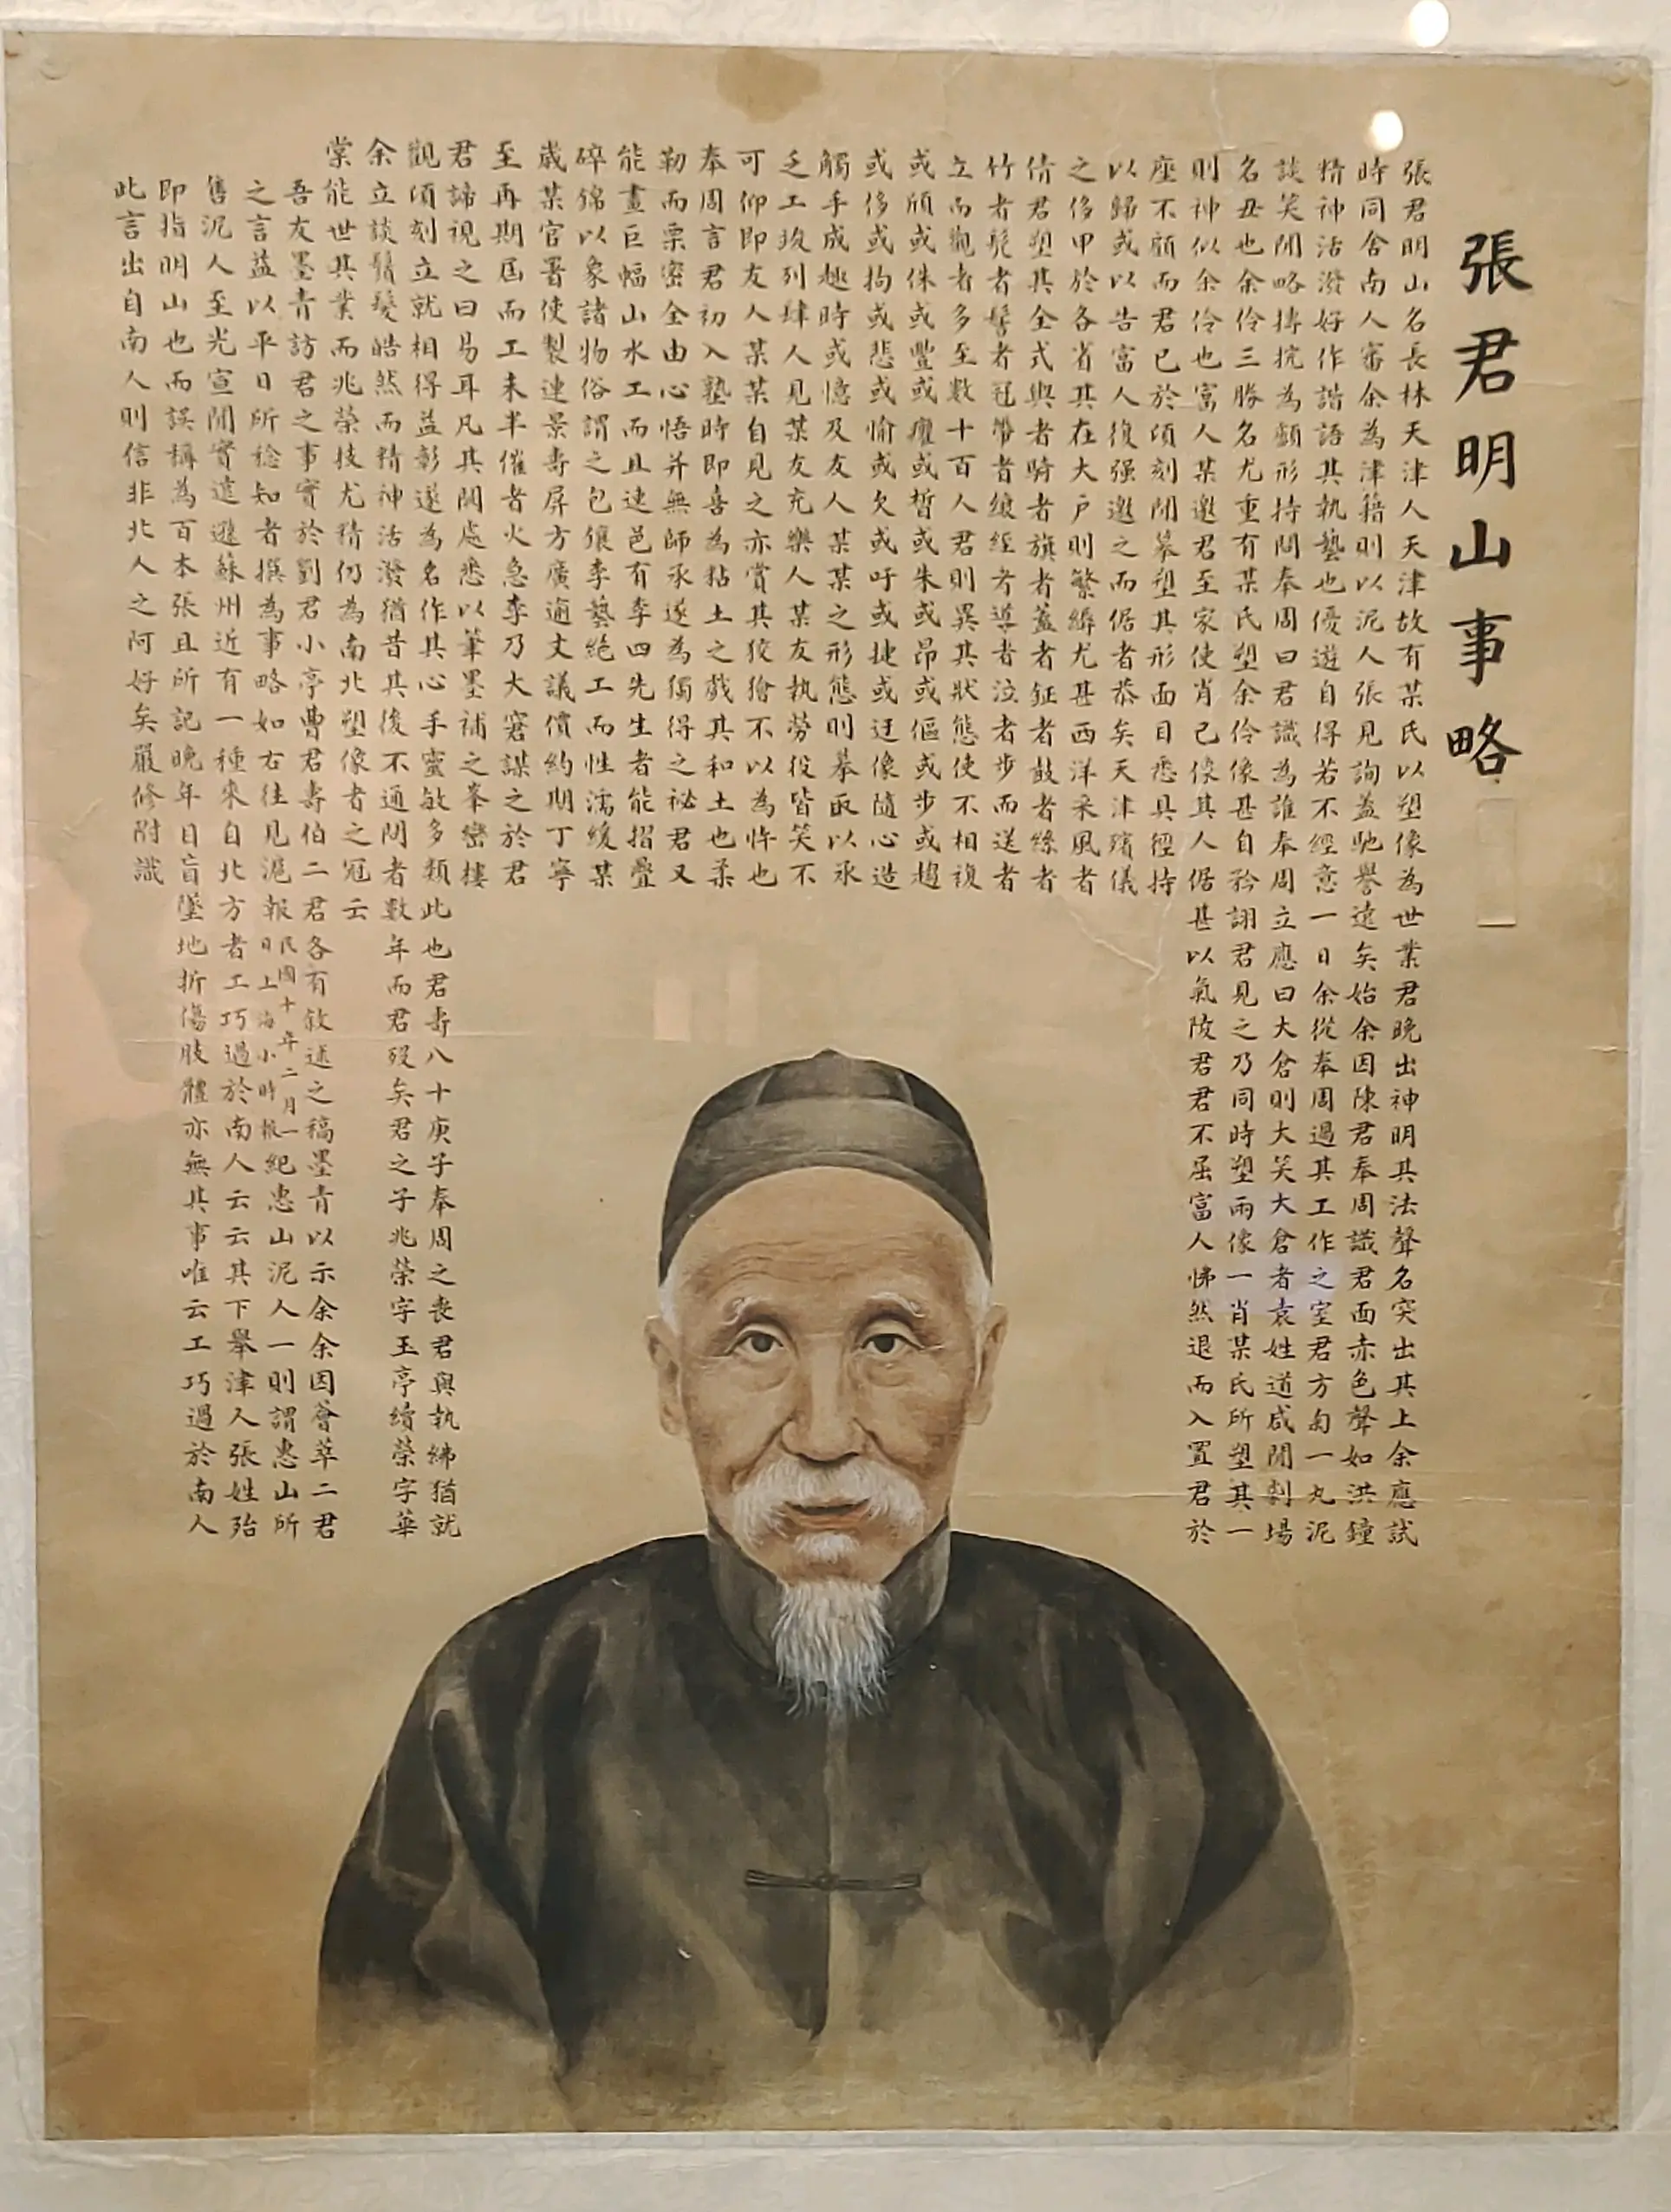 張君明山事略
張君明山名長林天津人天津故有某氏以塑像為世業君晚出神明其法聲名突出其上余應試
時同舍南人審余為津籍則以泥人張見詢蓋馳譽遠矣始余因陳君奉周識君面赤色聲如洪鐘
精神活潑好作諧語其執藝也優遊自得若不經意一日余從奉周過其工作之室君方匋一丸泥
談笑間略摶捖為顱形持問奉周曰君識為誰奉周立應曰大倉則大笑大倉者袁姓道咸間劇場
名丑也余伶三勝名尤重有某氏塑余伶像甚自矜詡君見之乃同時塑兩像一肖某氏所塑其一
則神似余伶也富人某邀君至家使肖己像其人倨甚以氣陵君君不屈富人怫然退而入置君於
座不顧而君已於頃刻間摹塑其形面目悉具徑持
以歸或以告富人復强邀之而倨者恭矣天津殯儀
之侈甲於各省其在大戶則繁縟尤甚西洋采風者
倩君塑其全式輿者騎者旗者蓋者鉦者鼓者絲者
竹者髡者髻者冠帶者縗絰者導者泣者步而送者
立而觀者多至數十百人君則異其狀態使不相複
或頎或侏或豐或癯或皙或朱或昂或傴或步或趨
或侈或拘或悲或愉或欠或吁或捷或迂像隨心造
觸手成趣時或憶及友人某某之形態則摹取以承
乏工竣列肆人見某友充樂人某友執勞役皆笑不
可仰即友人某某自見之亦賞其狡獪不以為忤也
奉周言君初入塾時即喜為黏土之戲其和土也柔
勒而栗密全由心悟并無師承遂為獨得之祕君又
能畫巨幅山水工而且速邑有李四先生者能摺疊
碎錦以象諸物俗謂之包儴李藝絕工而性濡緩某
歲某官署使製連景壽屏方廣逾丈議價約期丁寧
至再期屆而工未半催者火急李乃大窘謀之於君
君諦視之曰易耳凡其闕處悉以筆墨補之峯巒樓
觀頃刻立就相得益彰遂為名作其心手靈敏多類此也君壽八十庚子奉周之喪君與執紼猶就
余立談鬚髮皓然而精神活潑猶昔其後不通問者數年而君歿矣君之子兆榮字玉亭續榮字華
棠能世其業而兆榮技尤精仍為南北塑像者之冠云
吾友墨青訪君之事實於劉君小亭曹君壽伯二君各有敘述之稿墨青以示余余因薈萃二君
之言益以平日所稔知者撰為事略如右往見滬報民國十年二月一日上海小時報紀惠山泥人一則謂惠山所
售泥人至光宣間實遠遜蘇州近有一種來自北方者工巧過於南人云云其下舉津人張姓殆
即指明山也而誤稱為百本張且所記晚年目盲墜地折傷肢體亦無其事唯云工巧過於南人
此言出自南人則信非北人之阿好矣嚴修附識